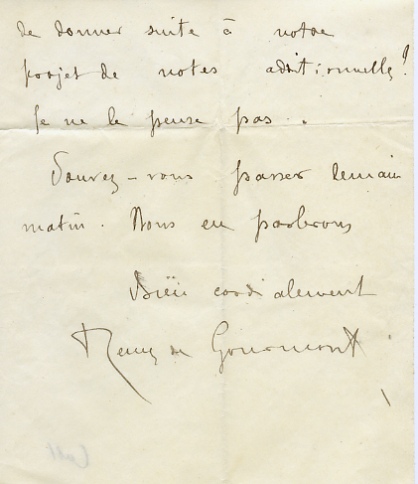 de donner suite à notre
projet de notes additionnelles?
Je ne le pense pas.
Pouvez-vous passer demain
matin. Nous en parlerons
Bien cordialement
Remy de Gourmont